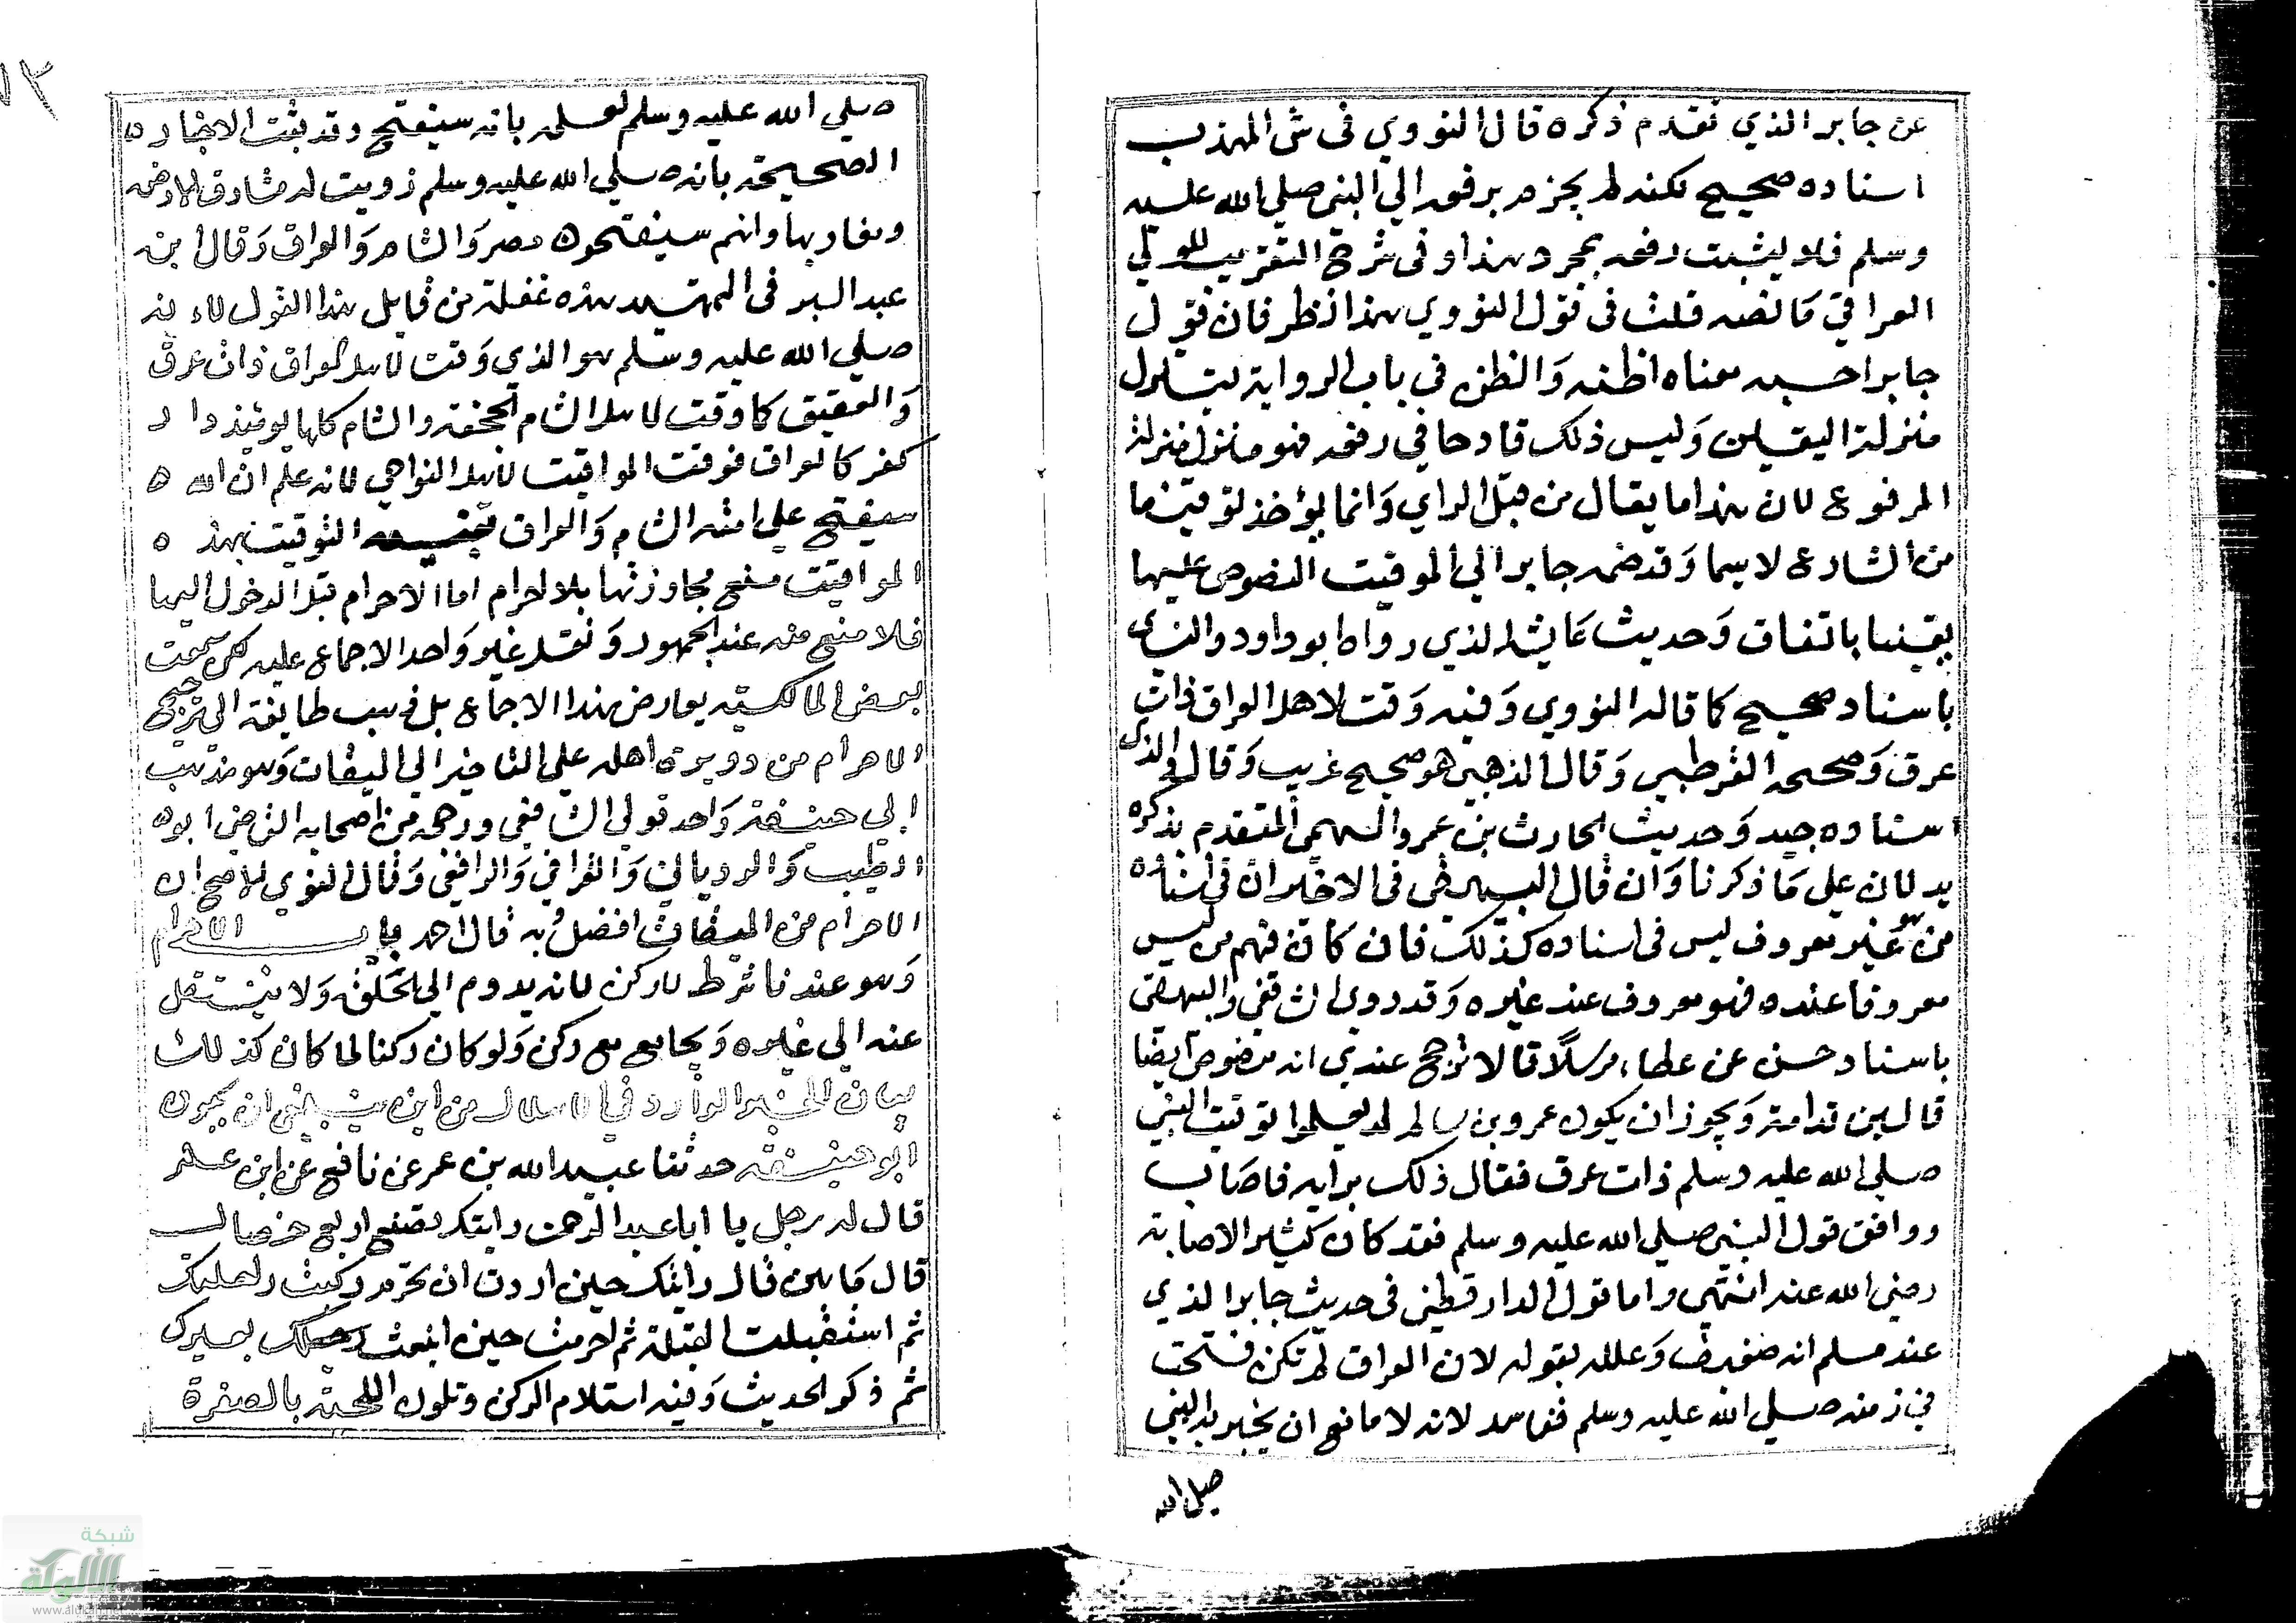 عن جابر الذي تقدم ذكره قال النووي في ش المهذب
اسناده صحيح لكنه لم يجزم برفعه الي النبي صلي الله عليه
وسلم فلا يثبت رفعه بمجرد هذا وفي شرح التقريب للولي
العراقي ما نصه قلت في قول النووي هذا نظر فان قول
جابر احسبه معناه اظنه والظن في باب الرواية يتنزل
منزلة اليقين وليس ذلك قادحا في رفعه فهو منزل منزلة
المرفوع لان هذا ما يقال من قبل الراي وانما يؤخذ توقيتها
من الشارع لا سيما وقد ضمه جابر الي الموقيت المنصوص عليها
يقينا باتفاق وحديث عايشة الذي رواه ابو داود والنساي
باسناد صحيح كما قاله النووي وفيه وقت لاهل العراق ذات
عرق وصححه القرطبي وقال الذهبي هو صحيح غريب وقال والذي
اسناده جيد وحديث الحارث بن عمرو السهمي المتقدم بذكره
يدلان علي ما ذكرنا وان قال البيهقي في الاخير ان في اسناده
من هو غير معروف ليس في اسناده كذلك فان كان فهم من ليس
معروفا عنده فهو معروف عند غيره وقد روي الشافعي والبيهقي
باسناد حسن عن عطاء مرسلا قال لا ترجح عندي انه منصوص ايضا
قال بن قدامة ويجوز ان يكون عمر وبن سالم لم يعلموا توقيت النبي
صلي الله عليه وسلم ذات عرق فقال ذلك برايه فاصاب
ووافق قول النبي صلي الله عليه وسلم فقد كان كثير الاصابة
رضي الله عنه انتهي واما قول الدارقطني في حديث جابر الذي
عند مسلم انه ضعيف وعلله بقوله لان العراق لم تكن فتحت
في زمنه صلي الله عليه وسلم ففاسد لانه لا مانع ان يخبر به النبي
صلي الله
صلي الله عليه وسلم لعلمه بانه سيفتح وقد ثبت الاخبار
الصحيحة بانه صلي الله عليه وسلم زويت له مشارق الارض
ومغاربها وانهم سيفتحون مصر والشام والعراق وقال ابن
عبد البر في التمهيد هذه غفلة من قايل هذا القول لانه
صلي الله عليه وسلم هو الذي وقت لاهل العراق ذات عرق
والعقيق كما وقت لاهل الشام الجحفة والشام كلها يومئذ دار
كفر كالعراق فوقت المواقيت لاهل النواحي لانه علم ان الله
سيفتح علي امته الشام والعراق التوقيت بهذه
المواقيت منع مجاوزتها بلا احرام اما الاحرام قبل الدخول اليها
فلا منع منه عند الجمهور ونقل غير واحد الاجماع عليه لكن سمعت
بعض المالكية يعارض هذا الاجماع بل ذهب طايفة الي ترجيح
الاحرام من دويرة اهله علي التاخير الي الميقات وهو مذهب
ابي حنيفة واحد قولي الشافعي ورجحه من اصحابه القاضي ابو
الطيب والروياني والغزالي والرافعي وقال النووي الاصح ان
الاحرام من الميقات افضل وبه قال احمد باب الاحرام
وهو عندنا شرط لا ركن لانه يدوم الي الحلق ولا ينتقل
عنه الي غيره ويجامع مع ركن ولو كان ركنا لما كان كذلك
بيان للخبر الوارد في الاهلال من اين ينبغي ان يكون
ابو حنيفة حدثنا عبيد الله بن عمر عن نافع عن ابن عمر
قال له رجل يا ابا عبد الرحمن رايتك تصنع اربع خصال
قال ما هن قال رايتك حين اردت ان تحرم ركبت راحلتك
ثم استقبلت القبلة ثم احرمت حين انبعث بك بعيرك
ثم ذكر الحديث وفيه استلام الركن وتلون اللحية بالصفرة
شبكة
الألوكة
www.alukah.net